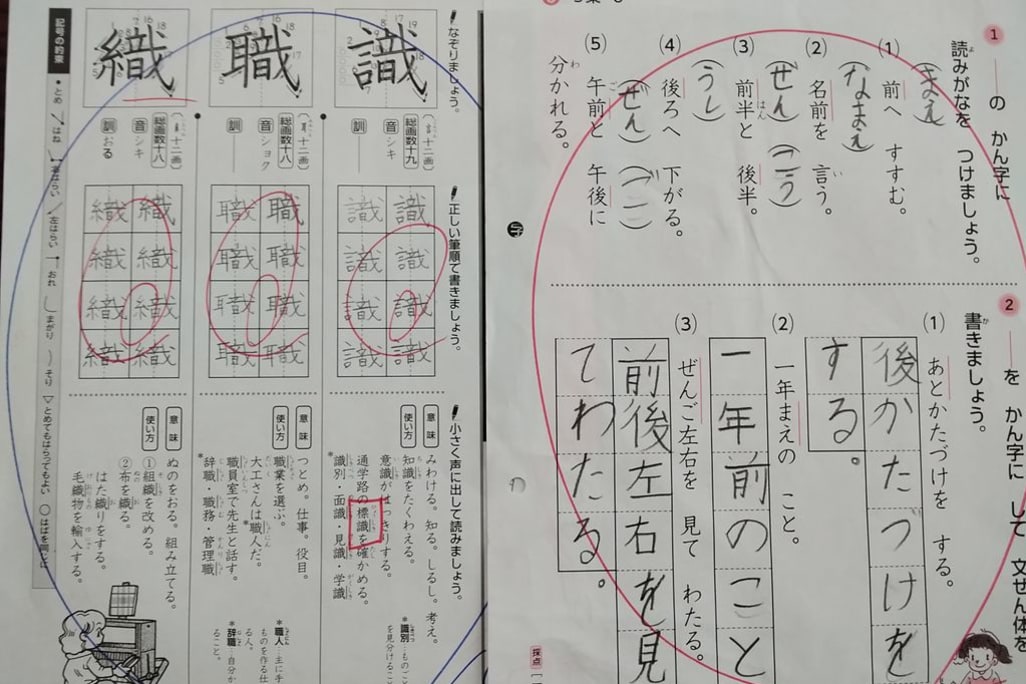 1
の かん字に
読みがなを つけましょう。
(1) 前へ すすむ。
(まえ)
(2) 名前を 言う。
(なまえ)
(3) 前半と 後半。
(ぜん) (こう)
(4) 後ろへ 下がる。
(うし)
(5) 午前と 午後に
(ぜん) (ご)
分かれる。
2
を かん字に して 文ぜん体を
書きましょう。
(1) あとかたづけを する。
後かたづけを
する。
(2) 一年まえの こと。
一年前のこと
(3) ぜんご左右を 見て わたる。
前後左右を見
てわたる。
採点
なぞりましょう。
識
総画数十九
音 シキ
訓
職
総画数十八
音 ショク
訓
織
総画数十八
音 シキ
訓 おる
正しい筆順で書きましょう。
識 識 識 識
識 識 識 識
職 職 職 職
職 職 職 職
織 織 織 織
織 織 織 織
小さく声に出して読みましょう。
意味 みわける。知る。しるし。考え。
使い方 知識をたくわえる。
意識がはっきりする。
通学路の標識を確かめる。
*識別・面識・見識・学識
*識別…ものごと
を見分けること
意味 つとめ。仕事。役目。
使い方 職業を選ぶ。
大工さんは職人だ。*
職員室で先生と話す。
*辞職・職務・管理職
*職人…主に手
ものを作る仕
る人。
*辞職…自分か
ること。
意味 ぬのをおる。組み立てる。
使い方 ①組織を改める。
②布を織る。
はた織りをする。
毛織物を輸入する。
記号の約束
とめ はね 右はらい 左はらい おれ まがり そり とめてもはらってもよい はばを同じに